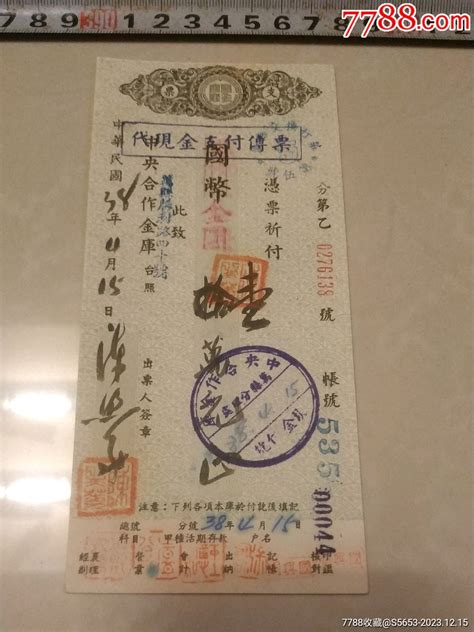 7788.com
中国收藏热线
7 8 9 300 1 2 3 4 5 6 7 8
支票
代現金支付傳票
分第乙 0276138 號
帳號 535 00044
憑票祈付
國幣金圓
壹拾萬元正
此致
中央合作金庫 台照
中華民國 38 年 4 月 15 日
出票人簽章
中央合作金庫
38.4.15
注意：下列各項本庫於付訖後填記
總號 分號 38 年 4 月 15 日
科目 甲種活期存款 戶名
經副襄理 營業 會計 出納 記帳 核對印鑑
7788收藏@S5653-2023.12.15